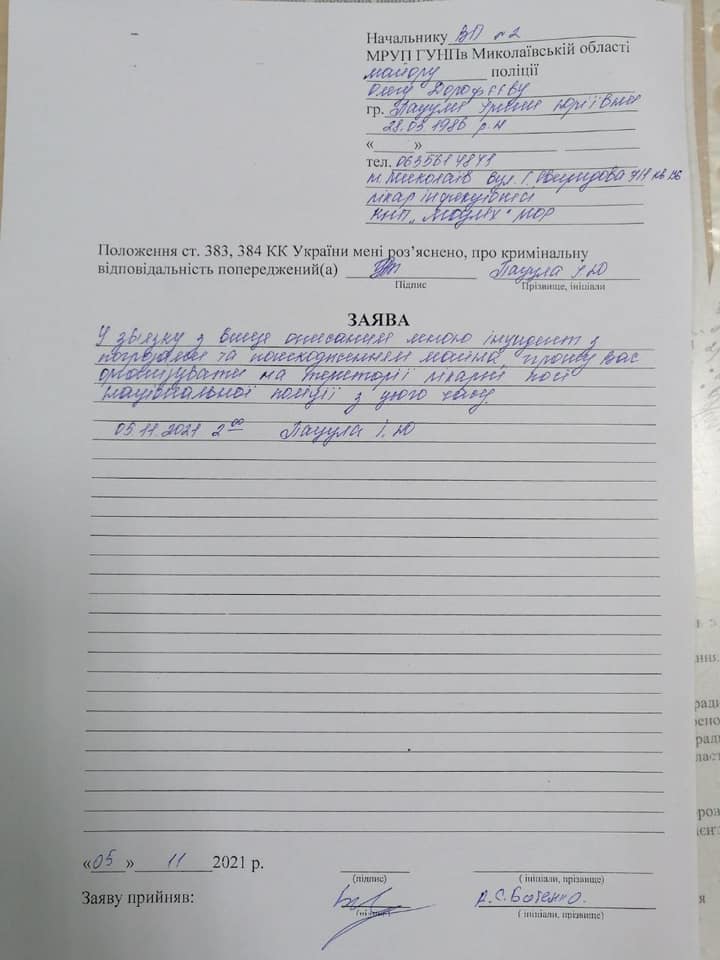 Начальнику ВП №2
МРУП ГУНПв Миколаївській області
майору поліції
Олегу Дорофєєву
гр. Пацули Ірини Юріївни
28.03.1986 р.н
«___»
тел. 0635614841
м. Миколаїв вул. кв
лікар інфекціоніст
КНП МОР
Положення ст. 383, 384 КК України мені роз’яснено, про кримінальну
відповідальність попереджений(а) Пацула І.Ю
Підпис Прізвище, ініціали
ЗАЯВА
У зв'язку з вище описаним мною інцидент з
погрозами та пошкодженням майна, прошу вас
організувати на території лікарні пост
національної поліції з цього часу.
05.11.2021 2 00 Пацула І.Ю
«05» 11 2021 р.
(підпис) ( ініціали, прізвище)
Заяву прийняв: А.С.
(підпис) ( ініціали, прізвище)